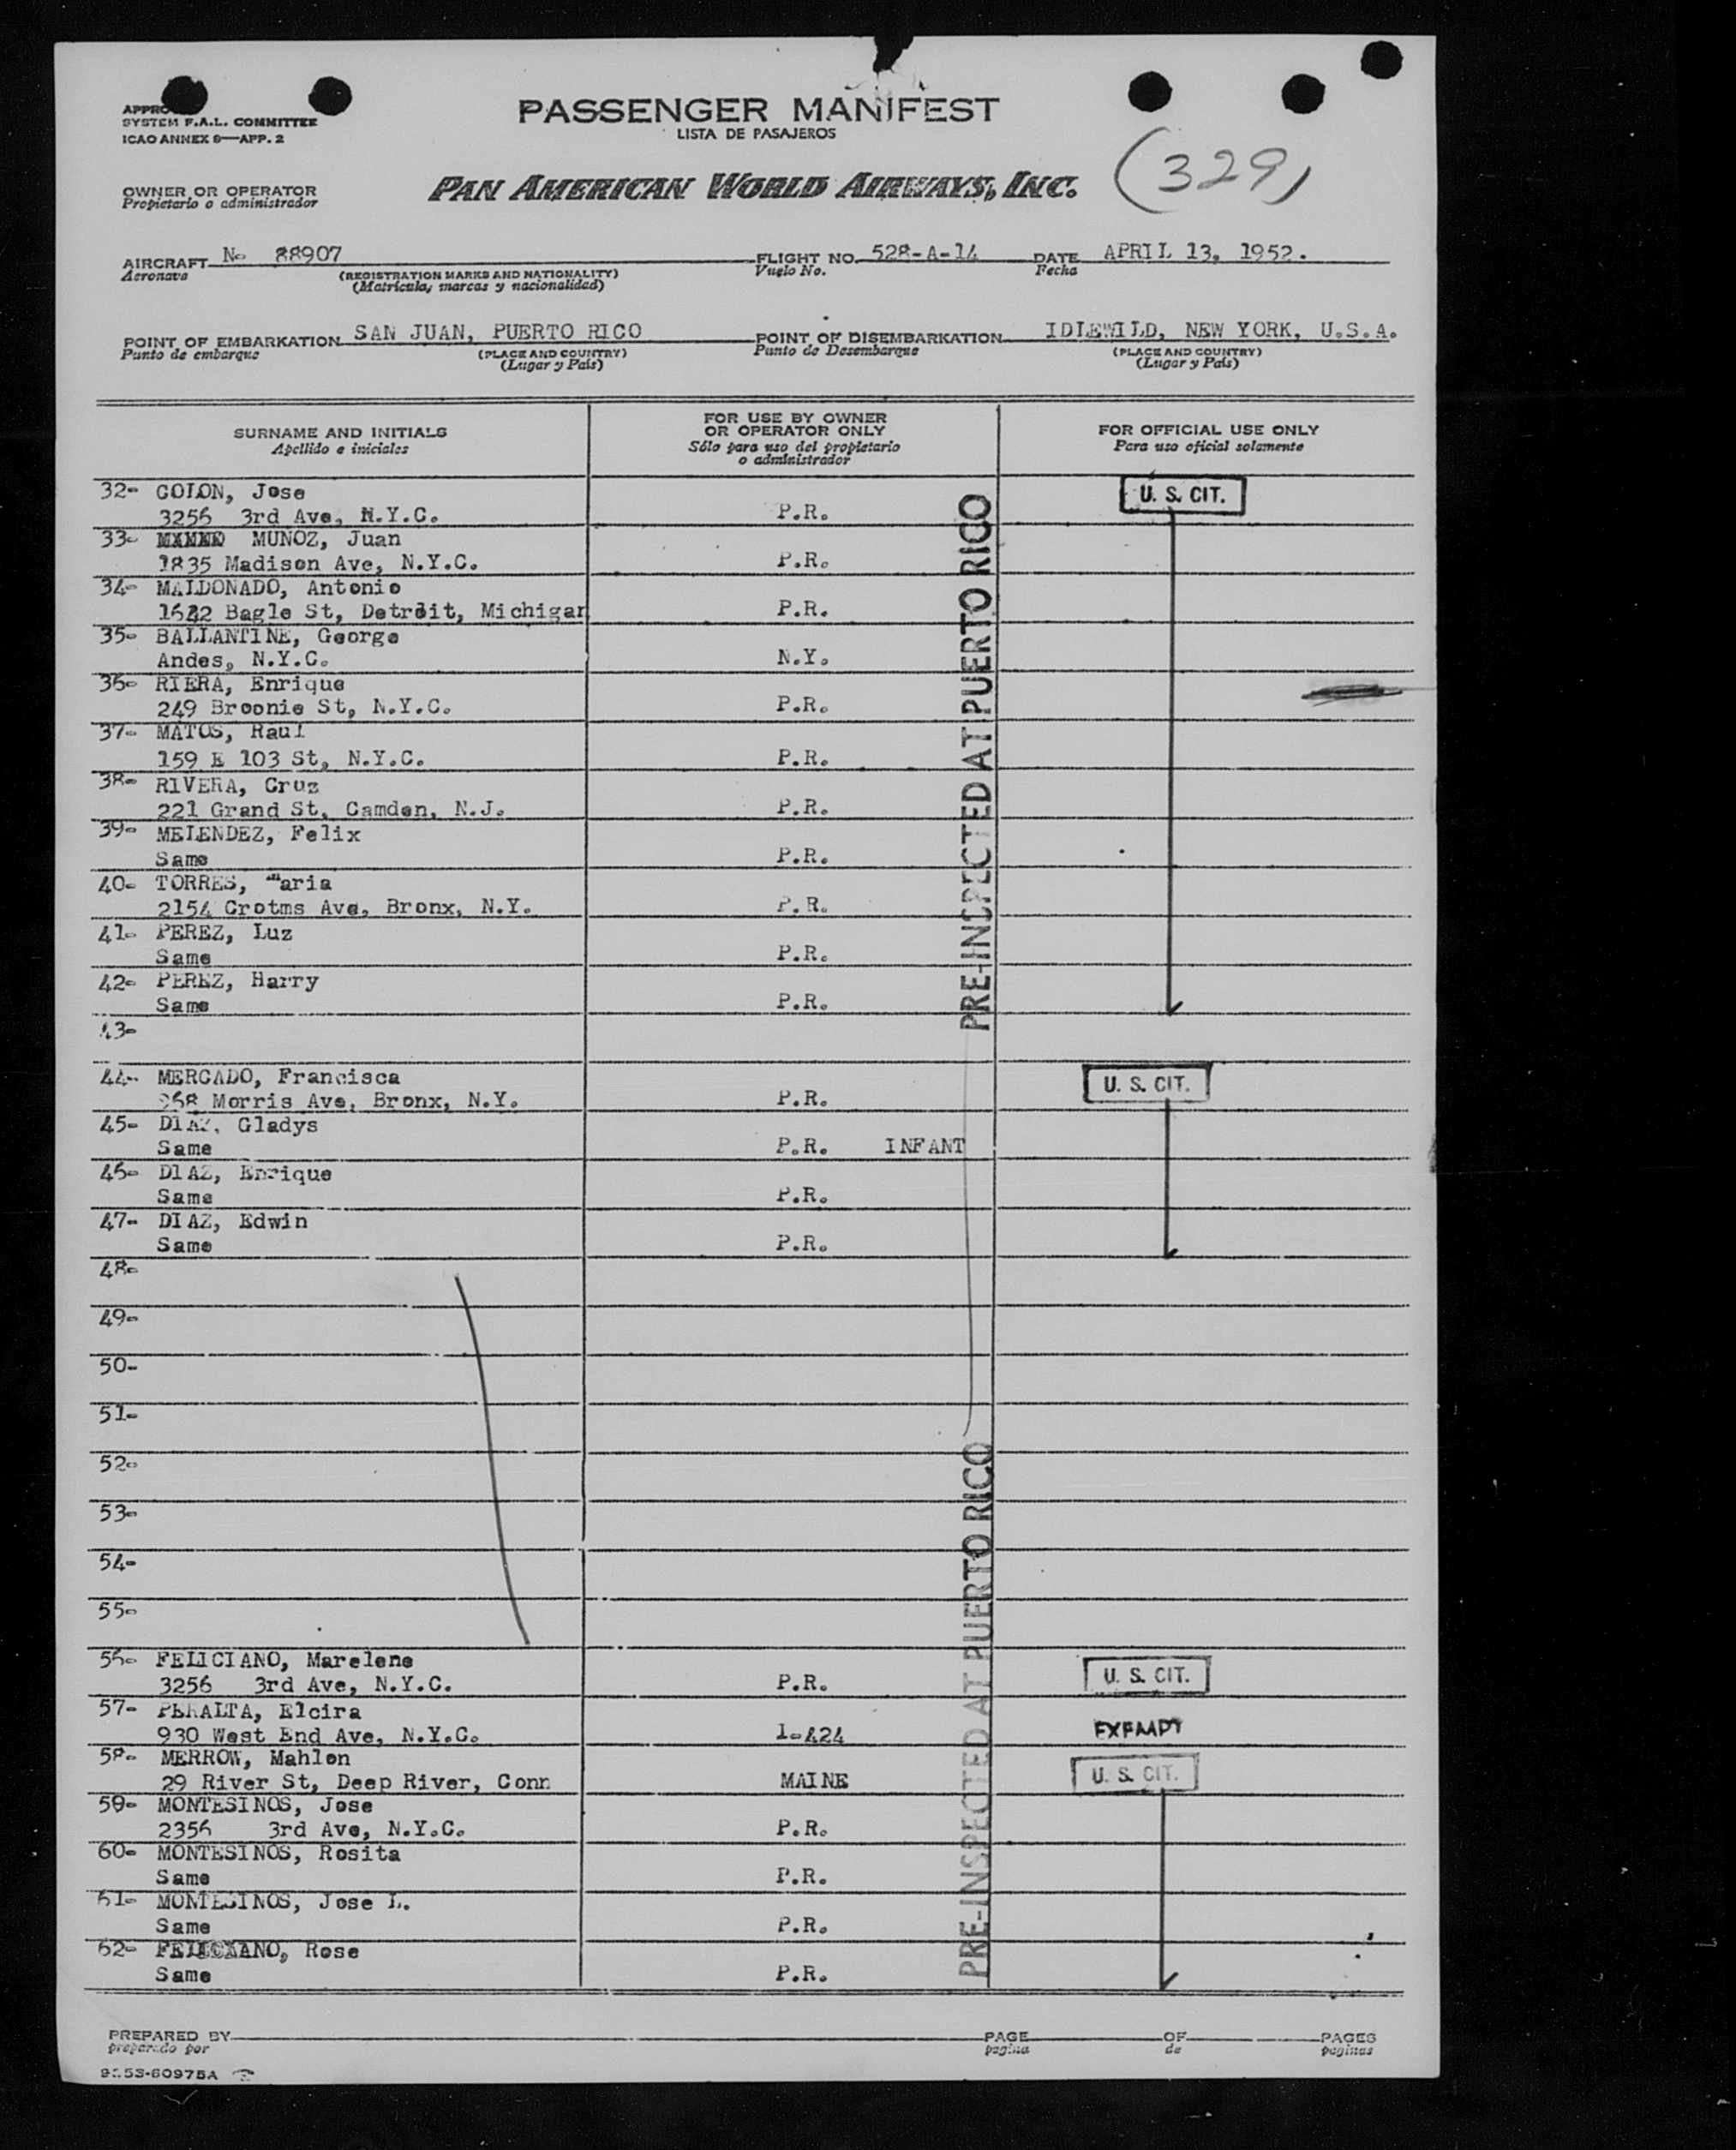 PASSENGER MANIFEST
LISTA DE PASAJEROS
SYSTEM F.A.L. COMMITTEE
ICAO ANNEX 9—APP. 2
(329)
OWNER OR OPERATOR
Propietario o administrador
PAN AMERICAN WORLD AIRWAYS, INC.
AIRCRAFT No 88907 FLIGHT NO. 528-A-14 DATE APRIL 13, 1952.
Aeronave (REGISTRATION MARKS AND NATIONALITY) Vuelo No. Fecha
(Matrícula, marcas y nacionalidad)
POINT OF EMBARKATION SAN JUAN, PUERTO RICO POINT OF DISEMBARKATION IDLEWILD, NEW YORK, U.S.A.
Punto de embarque (PLACE AND COUNTRY) Punto de Desembarque (PLACE AND COUNTRY)
(Lugar y País) (Lugar y País)
SURNAME AND INITIALS
Apellido e iniciales
FOR USE BY OWNER
OR OPERATOR ONLY
Sólo para uso del propietario
o administrador
FOR OFFICIAL USE ONLY
Para uso oficial solamente
32- COLON, Jose U. S. CIT.
3256 3rd Ave, N.Y.C. P.R.
33- MUNOZ, Juan
1835 Madison Ave, N.Y.C. P.R.
34- MALDONADO, Antonio
Bagle St, Detroit, Michigan P.R.
35- BALLANTINE, George
Andes, N.Y.C. N.Y.
36- RIERA, Enrique
249 Broonie St, N.Y.C. P.R.
37- MATOS, Raul
159 E 103 St, N.Y.C. P.R.
38- RIVERA, Cruz
221 Grand St, Camden, N.J. P.R.
39- MELENDEZ, Felix
Same P.R.
40- TORRES, Maria
2154 Crotms Ave, Bronx, N.Y. P.R.
41- PEREZ, Luz
Same P.R.
42- PEREZ, Harry
Same P.R.
PRE-INSPECTED AT PUERTO RICO
43-
44- MERCADO, Francisca U. S. CIT.
968 Morris Ave, Bronx, N.Y. P.R.
45- DIAZ, Gladys
Same P.R. INFANT
46- DIAZ, Enrique
Same P.R.
47- DIAZ, Edwin
Same P.R.
48-
49-
50-
51-
52-
53-
54-
55-
56- FELICIANO, Marelene U. S. CIT.
3256 3rd Ave, N.Y.C. P.R.
57- PERALTA, Elcira
930 West End Ave, N.Y.C. 1-424 EXEMPT
58- MERROW, Mahlon U. S. CIT.
29 River St, Deep River, Conn MAINE
59- MONTESINOS, Jose
2356 3rd Ave, N.Y.C. P.R.
60- MONTESINOS, Rosita
Same P.R.
61- MONTESINOS, Jose L.
Same P.R.
62- FELICIANO, Rose
Same P.R.
PRE-INSPECTED AT PUERTO RICO
PREPARED BY PAGE OF PAGES
preparado por pagina de paginas